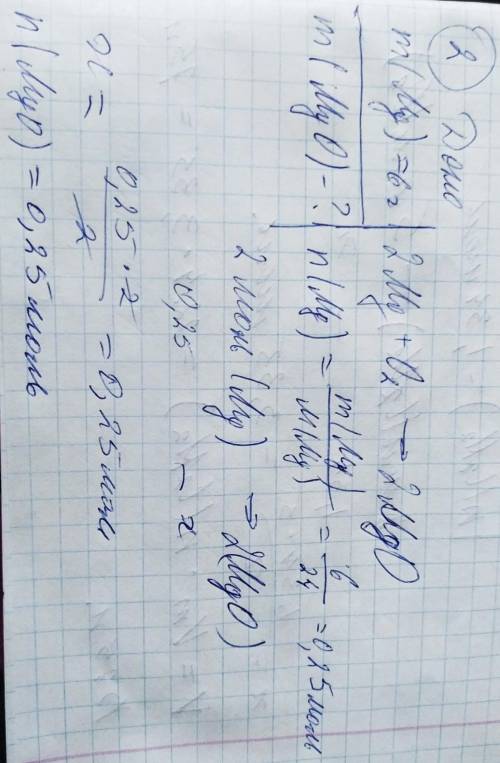 2 Дано
m(Mg) = 6г
m(MgO) - ?
2Mg + O₂ → 2MgO
n(Mg) = m(Mg)/M(Mg) = 6/24 = 0,25 моль
2 моль (Mg) → 2(MgO)
0,25 — x
x = 0,25 · 2 / 2 = 0,25 моль
n(MgO) = 0,25 моль